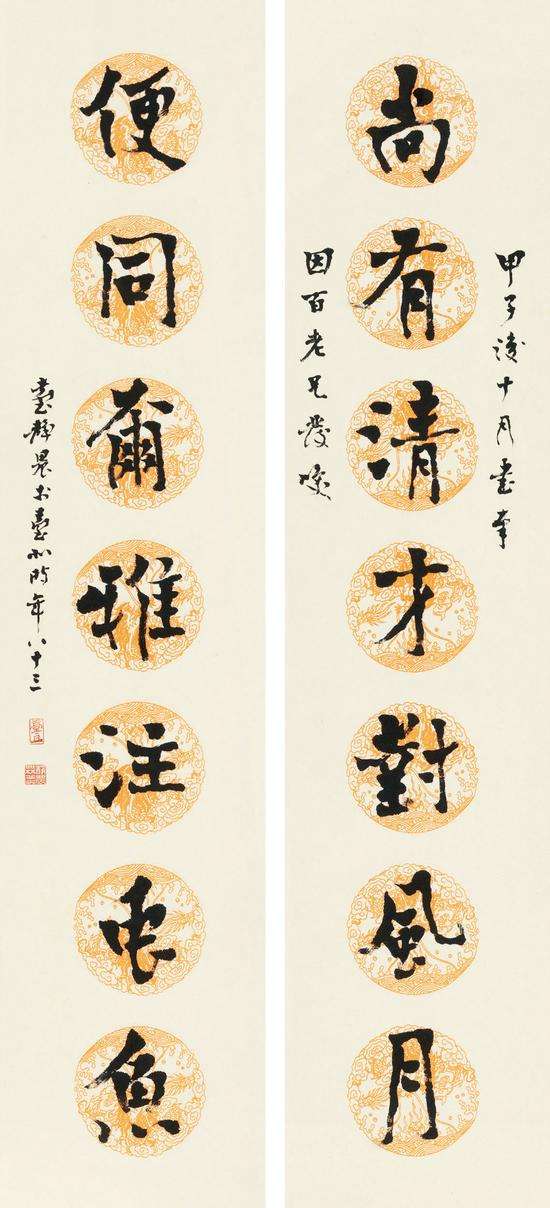 甲子後十月書奉
尚有清才對風月
因百老兄發咲
便同爾雅注虫魚
臺靜農於臺北時年八十三